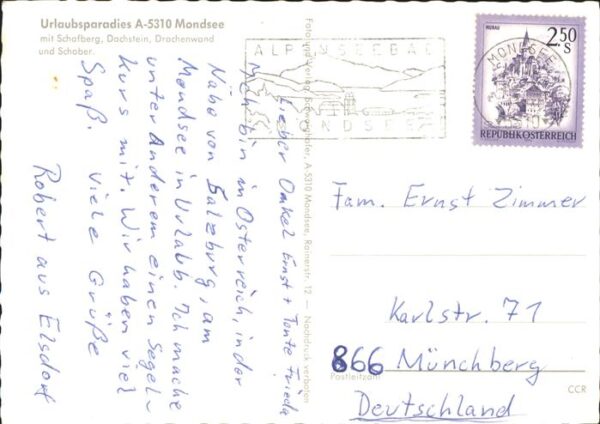 Urlaubsparadies A-5310 Mondsee
mit Schafberg, Dachstein, Drachenwand
und Schober.
Lieber Onkel Ernst + Tante Frieda
Ich bin in Österreich, in der
Nähe von Salzburg, am
Mondsee in Urlaub. Ich mache
unter Anderem einen Segel-
kurs mit. Wir haben viel
Spaß. Viele Grüße
Robert aus Elsdorf
A-5310 Mondsee, Rainerstr. 12 — Nachdruck verboten
ALPENSEEBAD
MONDSEE
MONDSEE
MURAU
2.50
S
REPUBLIK ÖSTERREICH
Fam. Ernst Zimmer
Karlstr. 71
866 Münchberg
Postleitzahl
Deutschland
CCR